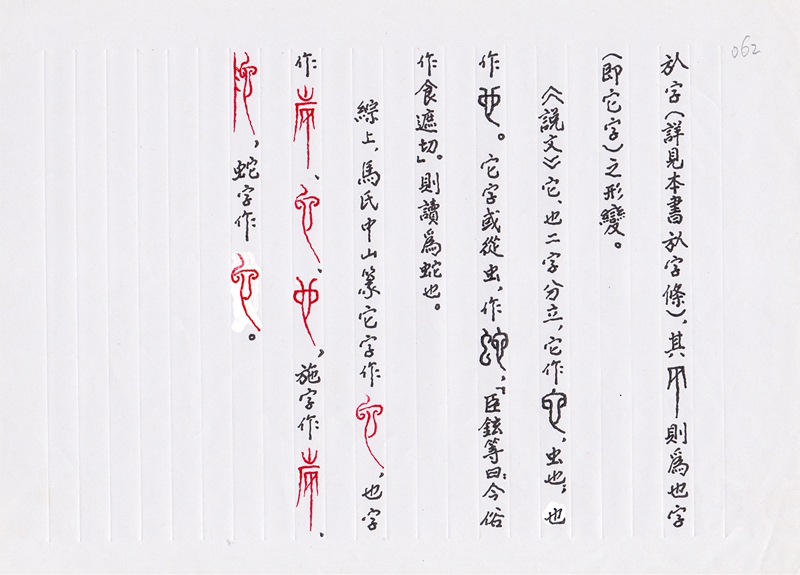 062
㫃字(詳見本書㫃字條)，其則爲也字
(即它字)之形變。
《說文》它、也二字分立，它作，虫也；也
作。它字或從虫，作，「臣鉉等曰：今俗
作食遮切」。則讀爲蛇也。
綜上，馬氏中山篆它字作，也字
作、、，施字作、
，蛇字作。